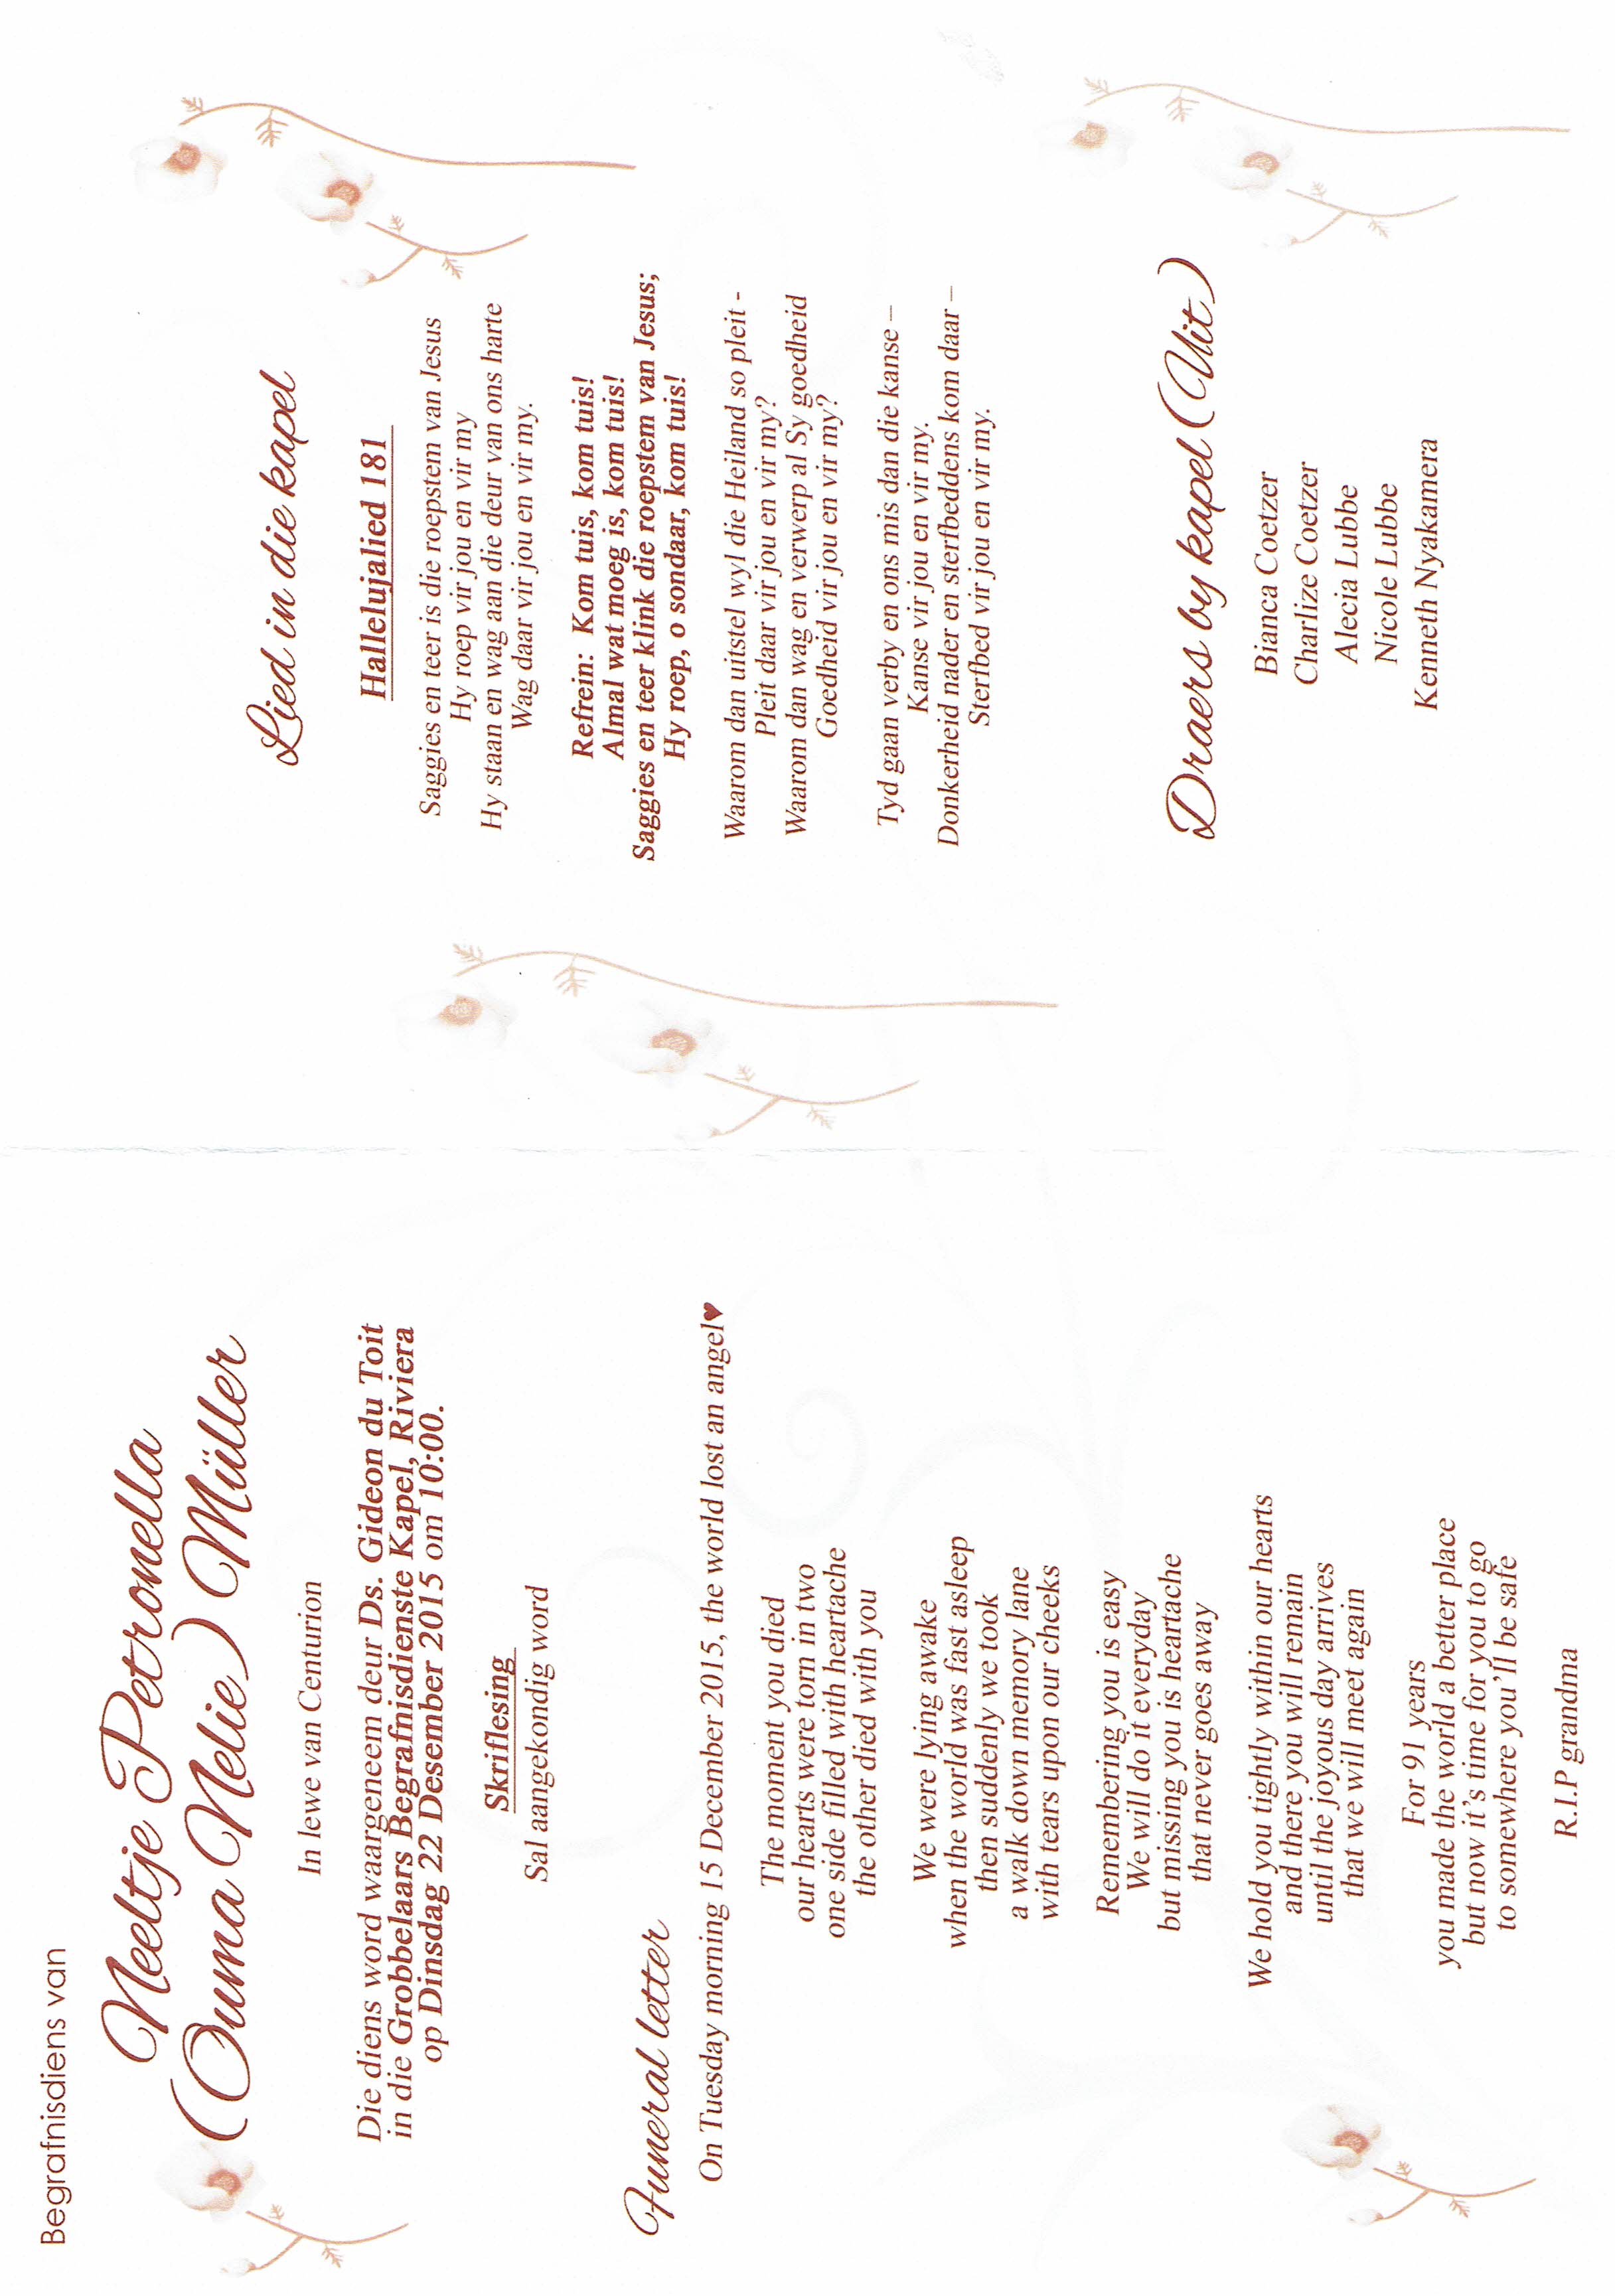 Begrafnisdiens van
Neeltje Petronella
(Ouma Nelie) Müller
In lewe van Centurion
Die diens word waargeneem deur Ds. Gideon du Toit
in die Grobbelaars Begrafnisdienste Kapel, Riviera
op Dinsdag 22 Desember 2015 om 10:00.
Skriflesing
Sal aangekondig word
Funeral letter
On Tuesday morning 15 December 2015, the world lost an angel♥
The moment you died
our hearts were torn in two
one side filled with heartache
the other died with you
We were lying awake
when the world was fast asleep
then suddenly we took
a walk down memory lane
with tears upon our cheeks
Remembering you is easy
We will do it everyday
but missing you is heartache
that never goes away
We hold you tightly within our hearts
and there you will remain
until the joyous day arrives
that we will meet again
For 91 years
you made the world a better place
but now it's time for you to go
to somewhere you'll be safe
R.I.P grandma
Lied in die kapel
Hallelujalied 181
Saggies en teer is die roepstem van Jesus
Hy roep vir jou en vir my
Hy staan en wag aan die deur van ons harte
Wag daar vir jou en vir my.
Refrein: Kom tuis, kom tuis!
Almal wat moeg is, kom tuis!
Saggies en teer klink die roepstem van Jesus;
Hy roep, o sondaar, kom tuis!
Waarom dan uitstel wyl die Heiland so pleit -
Pleit daar vir jou en vir my?
Waarom dan wag en verwerp al Sy goedheid
Goedheid vir jou en vir my?
Tyd gaan verby en ons mis dan die kanse –
Kanse vir jou en vir my.
Donkerheid nader en sterfbeddens kom daar –
Sterfbed vir jou en vir my.
Draers by kapel (Uit)
Bianca Coetzer
Charlize Coetzer
Alecia Lubbe
Nicole Lubbe
Kenneth Nyakamera